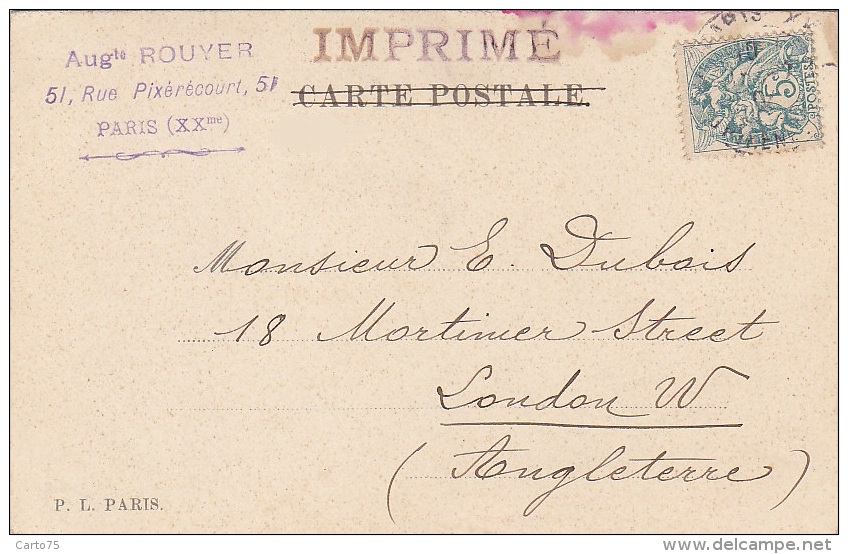 Aug^te ROUYER
51, Rue Pixérécourt, 51
PARIS (XX^me)
IMPRIMÉ
CARTE POSTALE.
PARIS
5c
POSTES
Monsieur E. Dubois
18 Mortimer Street
London W
(Angleterre)
P. L. PARIS.
Carto75
www.delcampe.net